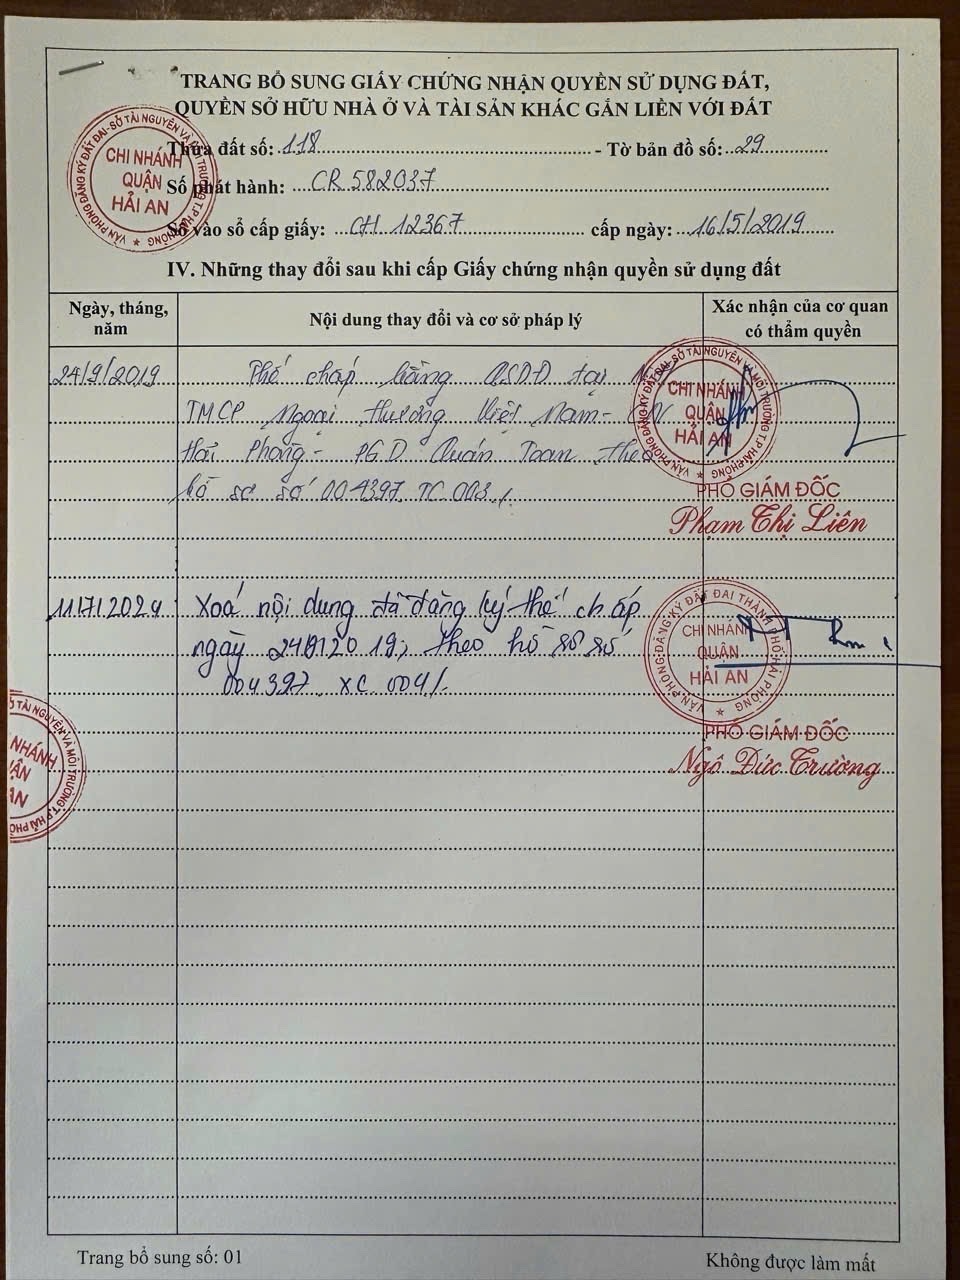 TRANG BỔ SUNG GIẤY CHỨNG NHẬN QUYỀN SỬ DỤNG ĐẤT,
QUYỀN SỞ HỮU NHÀ Ở VÀ TÀI SẢN KHÁC GẮN LIỀN VỚI ĐẤT
Thửa đất số: 118 - Tờ bản đồ số: 29
Số phát hành: CR 582037
Số vào sổ cấp giấy: CH 12367 cấp ngày: 16/5/2019
VĂN PHÒNG ĐĂNG KÝ ĐẤT ĐAI-SỞ TÀI NGUYÊN VÀ MÔI TRƯỜNG T.P HẢI PHÒNG
CHI NHÁNH
QUẬN
HẢI AN
IV. Những thay đổi sau khi cấp Giấy chứng nhận quyền sử dụng đất
Ngày, tháng, năm
Nội dung thay đổi và cơ sở pháp lý
Xác nhận của cơ quan có thẩm quyền
24/9/2019 Thế chấp bằng QSDĐ tại
TMCP Ngoại thương Việt Nam - CN
Hải Phòng - PGD Quán Toan theo
hồ sơ số 004397.TC.003/.
VĂN PHÒNG ĐĂNG KÝ ĐẤT ĐAI-SỞ TÀI NGUYÊN VÀ MÔI TRƯỜNG T.P HẢI PHÒNG
CHI NHÁNH
QUẬN
HẢI AN
PHÓ GIÁM ĐỐC
Phạm Thị Liên
11/7/2024 Xoá nội dung đã đăng ký thế chấp
ngày 24/9/2019; theo hồ sơ số
004397.XC.004/.
VĂN PHÒNG ĐĂNG KÝ ĐẤT ĐAI THÀNH PHỐ HẢI PHÒNG
CHI NHÁNH
QUẬN
HẢI AN
PHÓ GIÁM ĐỐC
Ngô Đức Trường
TÀI NGUYÊN VÀ MÔI TRƯỜNG T.P HẢI PHÒ
NHÁNH
ẬN
AN
Trang bổ sung số: 01
Không được làm mất